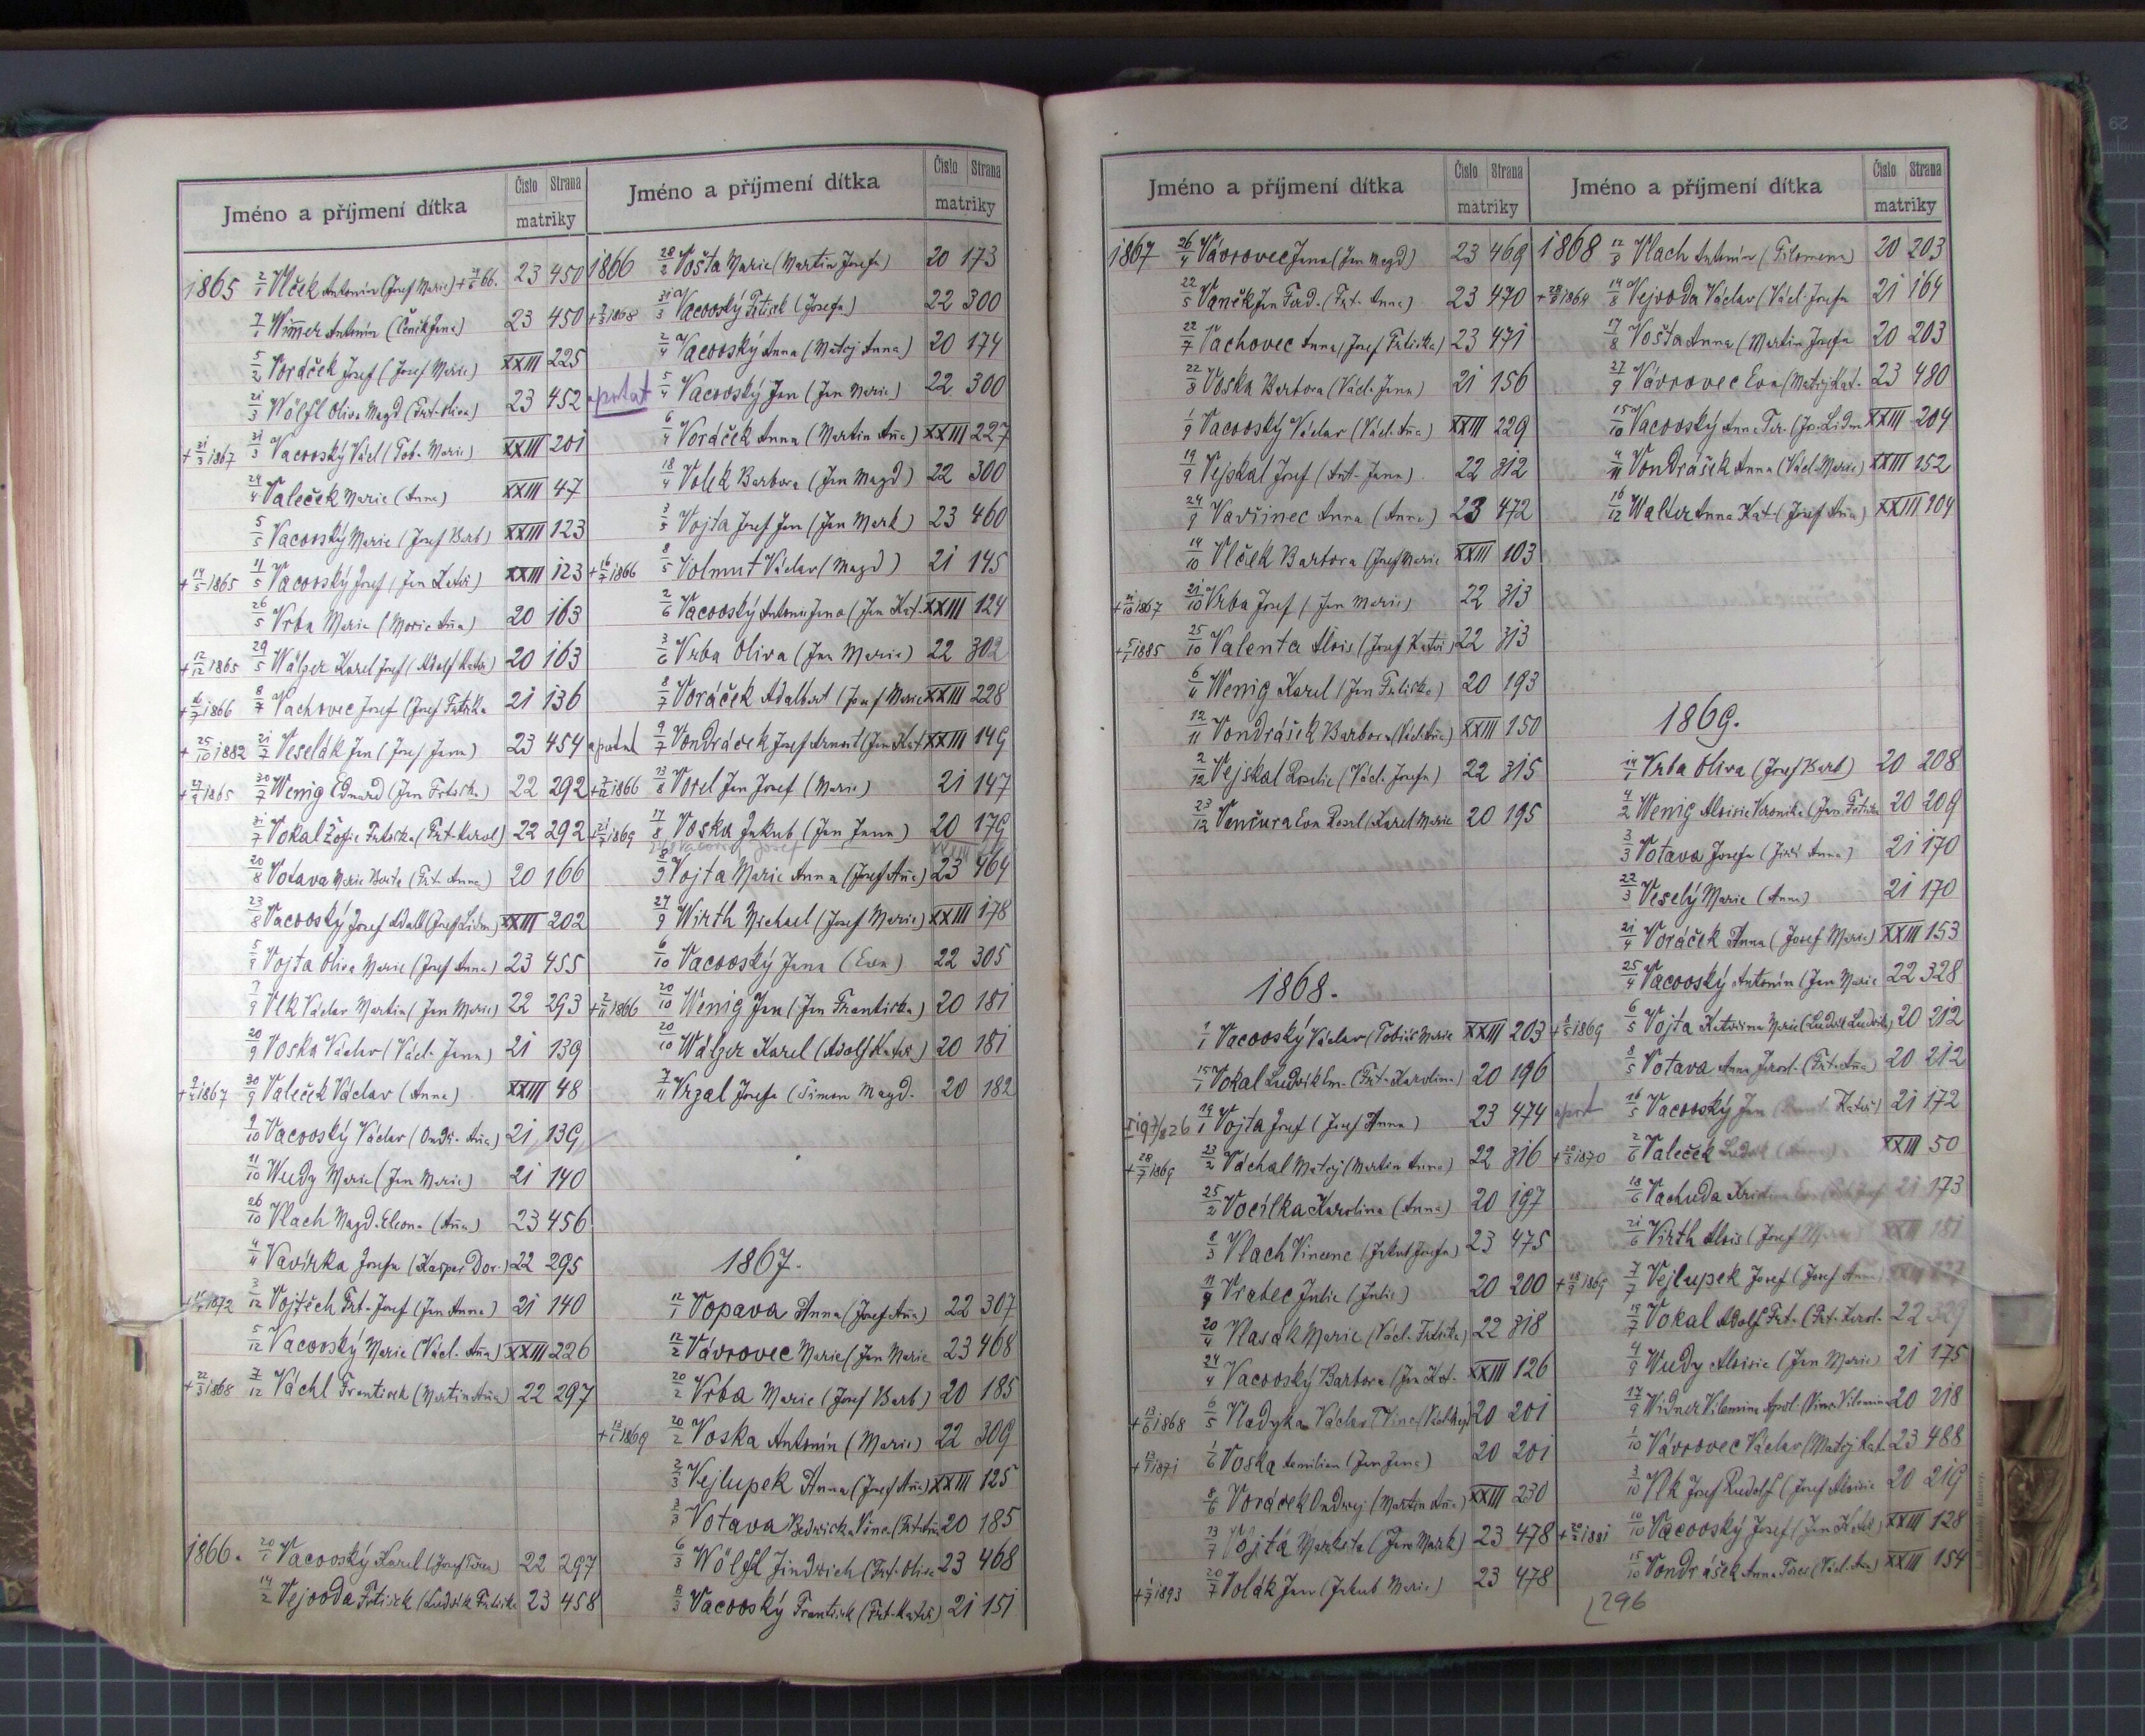 Jméno a příjmení dítka
Číslo Strana
matriky
1865 2/1 Vlček Antonín (Josef Marie) 23 450
7/1 Wimmer Antonín (Čeněk Jana) 23 450
5/2 Voráček Josef (Josef Marie) XXIII 225
21/3 Wölfl Oliva Magd (Frt. Oliva) 23 452
+ 31/3 1867 31/3 Vacovský Václ (Tob. Marie) XXIII 201
24/4 Valeček Marie (Anna) XXIII 47
5/5 Vacovský Marie (Josef Barb) XXIII 123
+ 14/5 1865 11/5 Vacovský Josef (Jan Kateř) XXIII 123
26/5 Vrba Marie (Marie Aña) 20 163
+ 17/12 1865 29/5 Wälzer Karel Josef (Adolf Kateř) 20 163
+ 16/7 1866 8/7 Vachovec Josef (Josef Frtiska 21 136
+ 25/10 1882 21/7 Veselák Jan (Josef Jana) 23 454
1865 30/7 Wenig Eduard (Jan Frtiska) 22 292
31/7 Vokal Žofie Frtiska (Frt. Karol) 22 292
20/8 Votava Marie Berta (Frt. Anna) 20 166
23/8 Vacovský Josef Adalb (Josef Lidm) XXIII 202
5/9 Vojta Oliva Marie (Josef Anna) 23 455
7/9 Vlk Václav Martin (Jan Marie) 22 293
20/9 Voska Václav (Václ. Jana) 21 139
1867 30/9 Valeček Václav (Anna) XXIII 48
9/10 Vacovský Václav (Ondř. Aña) 21 139
11/10 Wudy Marie (Jan Marie) 21 140
26/10 Vlach Magd. Eleon. (Aña) 23 456
4/11 Vavirka Josefa (Kašpar Dor.) 22 295
3/12 Vojtěch Frt. Josef (Jan Anna) 21 140
5/12 Vacovský Marie (Václ. Aña) XXIII 226
+ 22/3 1868 7/12 Váchl Frantisek (Martin Aña) 22 297
1866. 20/1 Vacovský Karel (Josef) 22 297
14/2 Vejvoda Frtisek (Ludvík Frtiska 23 458
Jméno a příjmení dítka
Číslo Strana
matriky
1866 28/2 Vošta Marie (Martin Josefa) 20 173
1868 31/3 Vacovský Frtisek (Josefa) 22 300
2/4 Vacovský Anna (Matěj Anna) 20 174
apostat 5/4 Vacovský Jan (Jan Marie) 22 300
6/4 Voráček Anna (Martin Aña) XXIII 227
18/4 Volek Barbora (Jan Magd) 22 300
3/5 Vojta Josef Jan (Jan Mark) 23 460
+ 16/7 1866 8/5 Volmut Václav (Magd) 21 145
2/6 Vacovský Antonie Jana (Jan Kat. XXIII 124
3/6 Vrba Oliva (Jan Marie) 22 302
8/7 Voráček Adalbert (Josef Marie XXIII 228
apostat 9/7 Vondráček Josef Arnošt (Jan Kat XXIII 149
1866 13/8 Vorel Jan Josef (Marie) 21 147
1869 17/8 Voska Jakub (Jan Jana) 20 179
8/9 Vojta Marie Anna (Josef Aña) 23 464
27/9 Wirth Michael (Josef Marie) XXIII 178
6/10 Vacovský Jana (Eva) 22 305
1866 20/10 Wenig Jan (Jan Frantiska) 20 181
20/10 Wälzer Karel (Adolf Kateř.) 20 181
7/11 Vrzal Josefa (Šimon Magd. 20 182
1867.
12/1 Vopava Anna (Josef Aña) 22 307
12/2 Vávrovec Marie (Jan Marie 23 468
20/2 Vrba Marie (Josef Barb) 20 185
1869 20/2 Voska Antonín (Marie) 22 309
2/3 Vejlupek Anna (Josef Aña) XXIII 125
3/3 Votava Bedriska Vinc. (Frt. Aña 20 185
6/3 Wölfl Jindrich (Frt. Oliva 23 468
8/3 Vacovský Frantisek (Frt. Kateř) 21 151
Jméno a příjmení dítka
Číslo Strana
matriky
1867 26/4 Vávrovec Jana (Jan Magd) 23 469
22/5 Vaněk Jan Ferd. (Frt. Anna) 23 470
22/7 Vachovec Anna (Josef Frtiska) 23 471
22/8 Voska Barbora (Václ. Jana) 21 156
1/9 Vacovský Václav (Václ. Aña) XXIII 229
19/9 Vejskal Josef (Ant. Jana) 22 312
24/9 Vavřinec Anna (Anna) 23 472
14/10 Vlček Barbora (Josef Marie XXIII 103
+ 21/10 1867 21/10 Vrba Josef (Jan Marie) 22 313
1885 25/10 Valenta Alois (Josef Kateř) 22 313
6/11 Wenig Karel (Jan Frtiska) 20 193
12/11 Vondrášek Barbora (Václ. Aña) XXIII 150
2/12 Vejskal Rosalie (Václ. Josefa) 22 315
23/12 Venčura Eva Rosal (Karel Marie 20 195
1868.
1/1 Vacovský Václav (Tobiáš Marie XXIII 203
15/1 Vokal Ludvik Em. (Frt. Karolina) 20 196
19/1 Vojta Josef (Josef Anna) 23 474
+ 28/7 1869 23/2 Váchal Matěj (Martin Anna) 22 316
25/2 Vocilka Karolina (Anna) 20 197
8/3 Vlach Vincenc (Jakub Josefa) 23 475
Vrabec Julie (Julie) 20 200
20/4 Vlasák Marie (Václ. Frtiska) 22 318
24/4 Vacovský Barbora (Jan Kat. XXIII 126
+ 13/6 1868 6/5 Vladyka Václav (Vinc.) 20 201
1871 1/6 Voska Aemilian (Jan Jana) 20 201
8/6 Vorácek Ondrej (Martin Aña) XXIII 230
13/7 Vojta Markéta (Jan Mark) 23 478
1893 20/7 Volák Jan (Jakub Marie) 23 478
Jméno a příjmení dítka
Číslo Strana
matriky
1868 12/8 Vlach Antonín (Filomena) 20 203
14/8 Vejvoda Václav (Václ. Josefa 21 164
17/8 Vošta Anna (Martin Josefa 20 203
27/9 Vávrovec Eva (Matěj Kat. 23 480
15/10 Vacovský Anna Ter. (Jos. Lidm XXIII 204
4/11 Vondrášek Anna (Václ. Marie) XXIII 152
16/12 Walter Anna Kat. (Josef Aña) XXIII 104
1869.
14/1 Vrba Oliva (Josef Barb) 20 208
4/2 Wenig Aloisie Veronika (Jan Frtiska 20 209
3/3 Votava Josefa (Jiří Anna) 21 170
22/3 Veselý Marie (Anna) 21 170
21/4 Voráček Anna (Josef Marie) XXIII 153
25/4 Vacovský Antonín (Jan Marie 22 328
1869 6/5 Vojta Kateřina Marie (Ludvík Ludvika) 20 212
8/5 Votava Anna Jarosl. (Frt. Aña) 20 212
16/5 Vacovský Jan Kateř) 21 172
1870 2/6 Valeček (Anna) XXIII 50
18/6 Vachuda 21 173
21/6 Virth Alois (Josef Marie) XXIII 181
1869 7/7 Vejlupek Josef (Josef Anna)
19/7 Vokal Adolf Frt. (Frt. Karol. 22 329
4/9 Wudy Aloisie (Jan Marie) 21 175
17/9 Widner Vilemina Apol. (Vinc. Vilemina 20 218
1/10 Vávrovec Václav (Matěj Kat. 23 488
3/10 Vlk Josef Rudolf (Josef Aloisie 20 219
1881 10/10 Vacovský Josef (Jan Kateř) XXIII 128
15/10 Vondrášek Anna Terez (Václ. Aña) XXIII 154
296